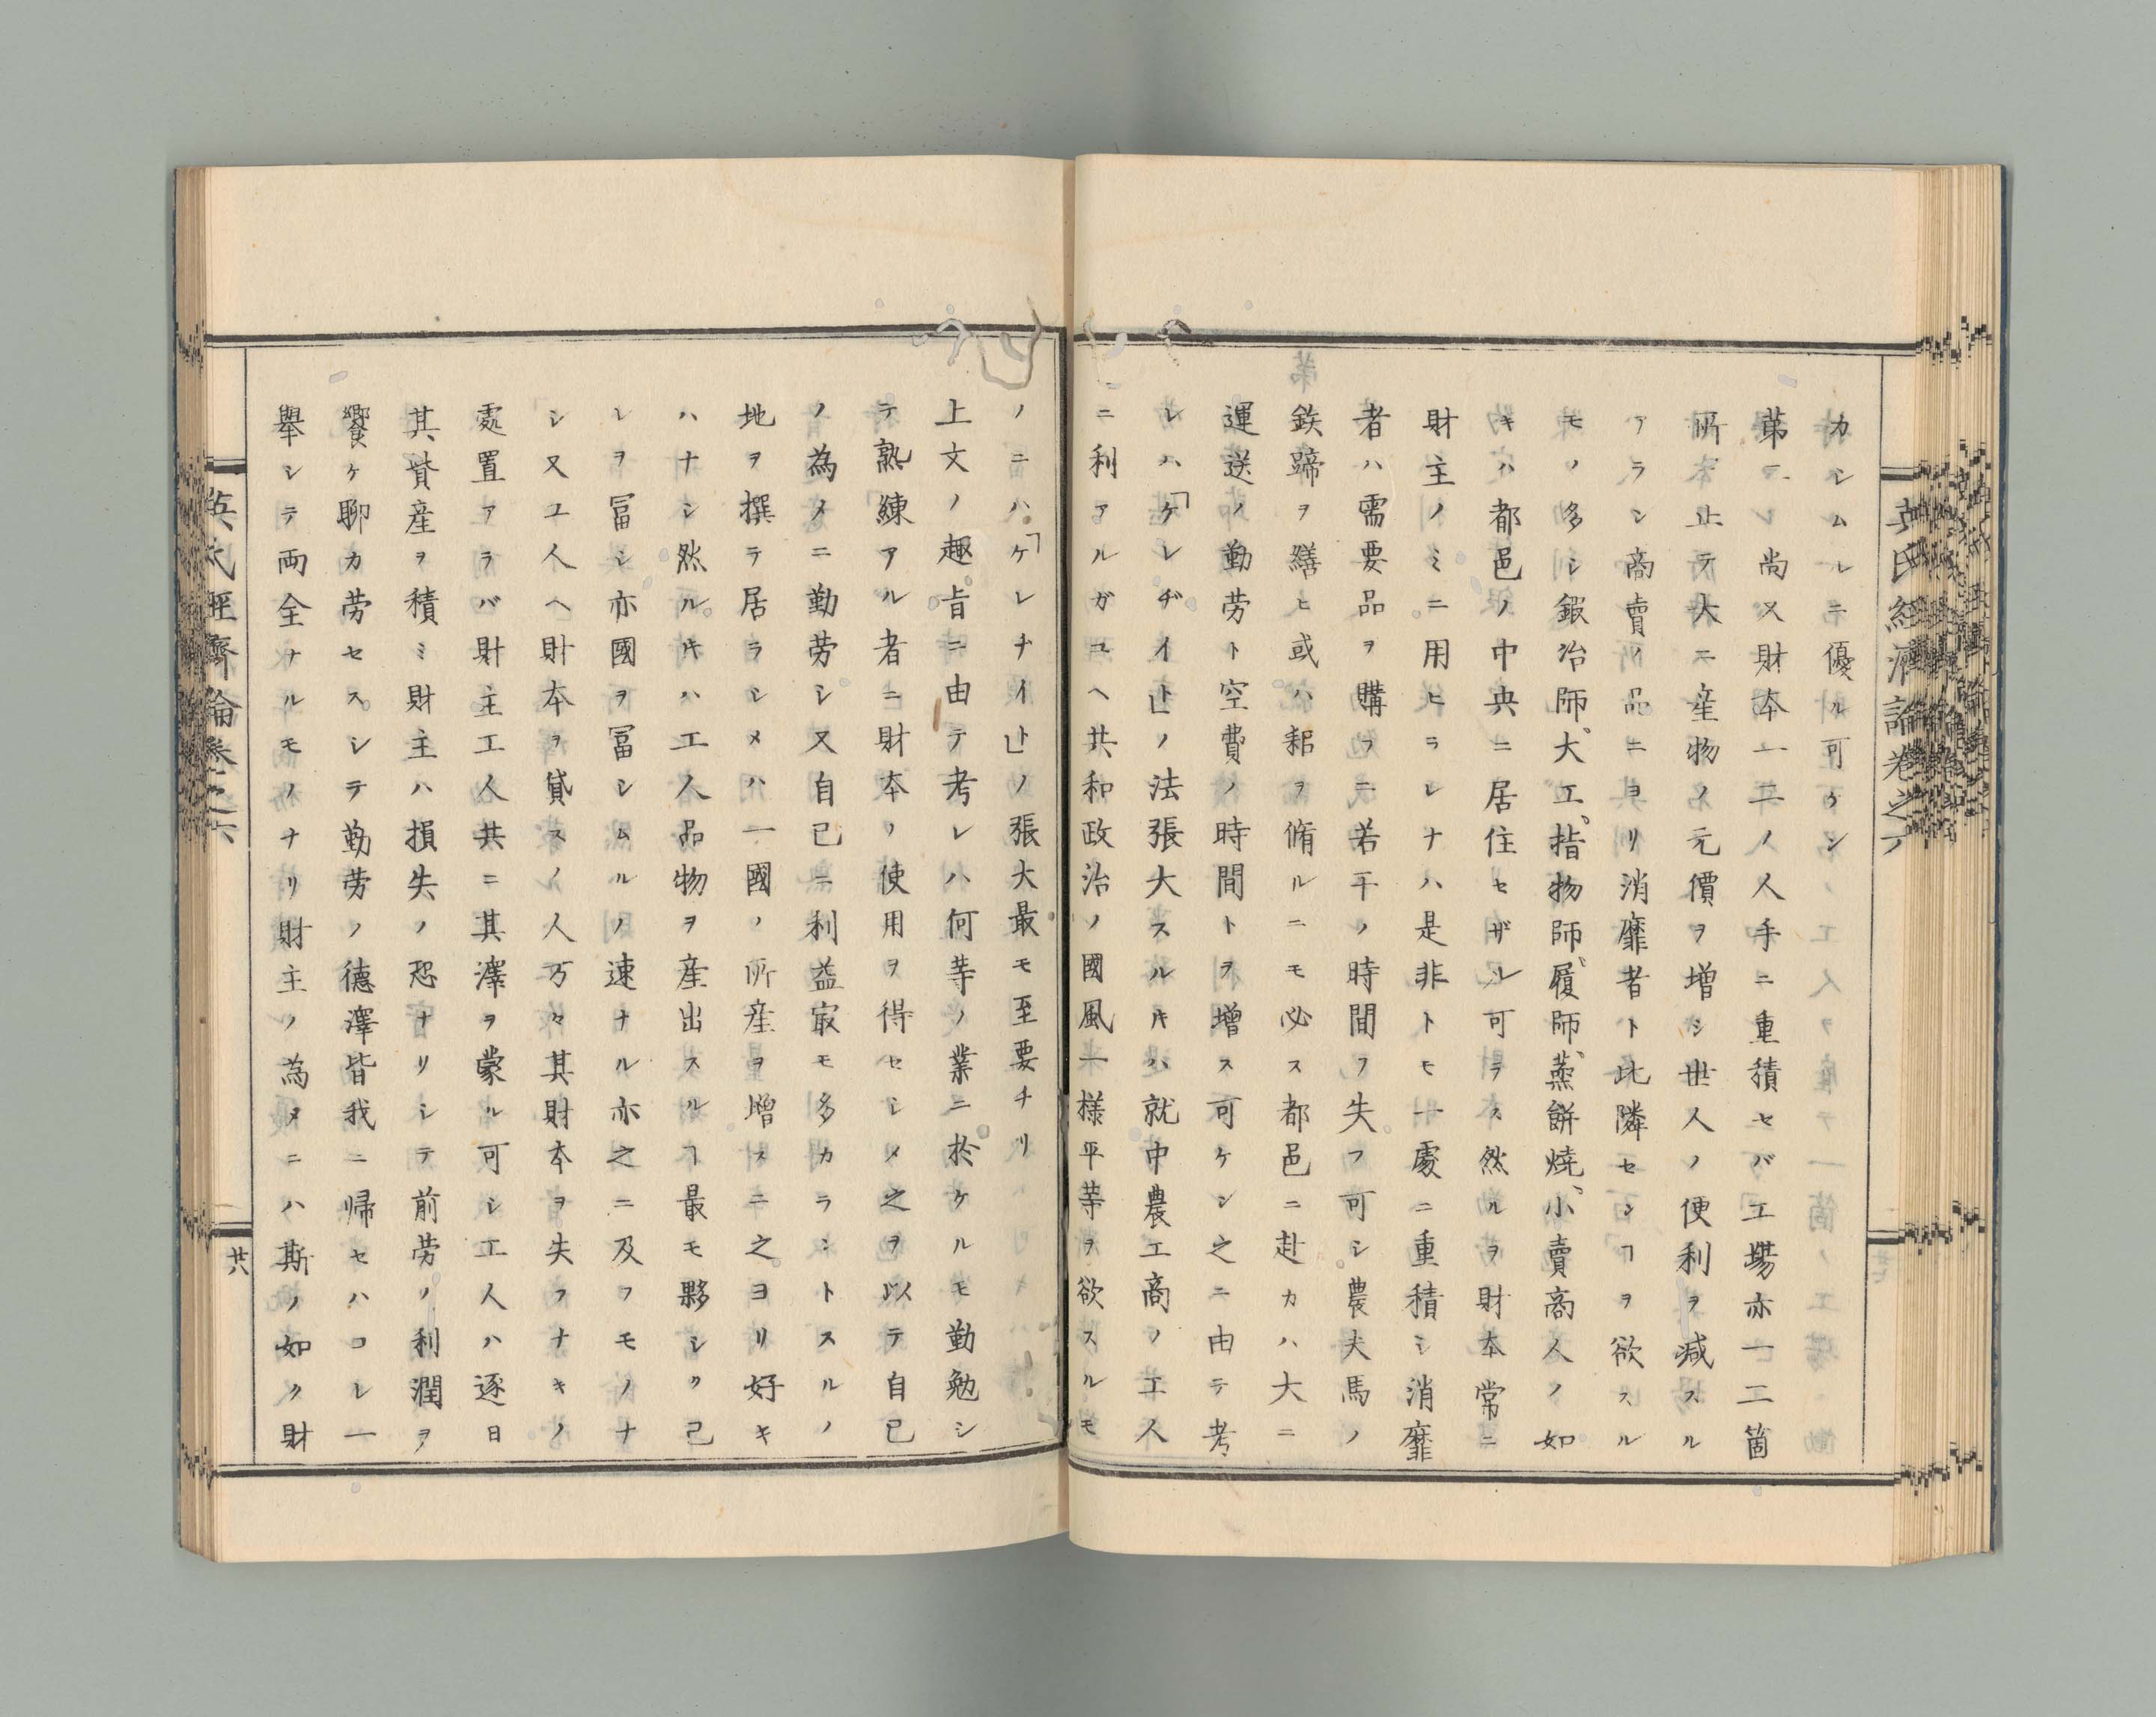 英氏經濟論卷之六
カシムルニ優ル可ケン
第二尚又財本一二ノ人手ニ重積セバ工場亦一二箇
所ニ止テ大ニ産物ノ元價ヲ増シ世人ノ便利ヲ減スル
アラン商賣ノ品ニヨリ消靡者ト比隣センヿヲ欲スル
モノ多シ鍜冶師、大工、指物師、履師、蒸餅燒、小賣商人ノ如
キハ都邑ノ中央ニ居住セザレ可ラス然ルヲ財本常ニ
財主ノミニ用ヒラレナハ是非トモ一處ニ重積シ消靡
者ハ需要品ヲ購フニ若干ノ時間ヲ失フ可シ農夫馬ノ
鉄蹄ヲ繕ヒ或ハ耜ヲ脩ルニモ必ス都邑ニ赴カハ大ニ
運送ノ勤労ト空費ノ時間トヲ増ス可ケン之ニ由テ考
レハ「ケレヂイト」ノ法張大スルキハ就中農工商ノ工人
ニ利アルガユヘ共和政治ノ國風一様平等ヲ欲スルモ
ノニハ「ケレヂイト」ノ張大最モ至要ナリ
上文ノ趣旨ニ由テ考レハ何等ノ業ニ於ケルモ勤勉シ
テ熟練アル者ニ財本ノ使用ヲ得セシメ之ヲ以テ自已
ノ為メニ勤労シ又自已ニ利益㝡モ多カラントスルノ
地ヲ撰テ居ラシメハ一國ノ所産ヲ増スニ之ヨリ好キ
ハナシ然ルキハ工人品物ヲ産出スルヿ最モ夥シク己
レヲ冨シ亦國ヲ冨シムルノ速ナル亦之ニ及フモノナ
シ又工人ヘ財本ヲ貸スノ人万々其財本ヲ失フナキノ
處置アラバ財主工人共ニ其澤ヲ蒙ル可シ工人ハ逐日
其貲産ヲ積ミ財主ハ損失ノ恐ナリシテ前労ノ利潤ヲ
饗ケ聊カ労セスシテ勤労ノ德澤皆我ニ帰セハコレ一
舉シテ両全ナルモノナリ財主ノ為メニハ斯ノ如ク財
英氏經濟論卷之六
廿八